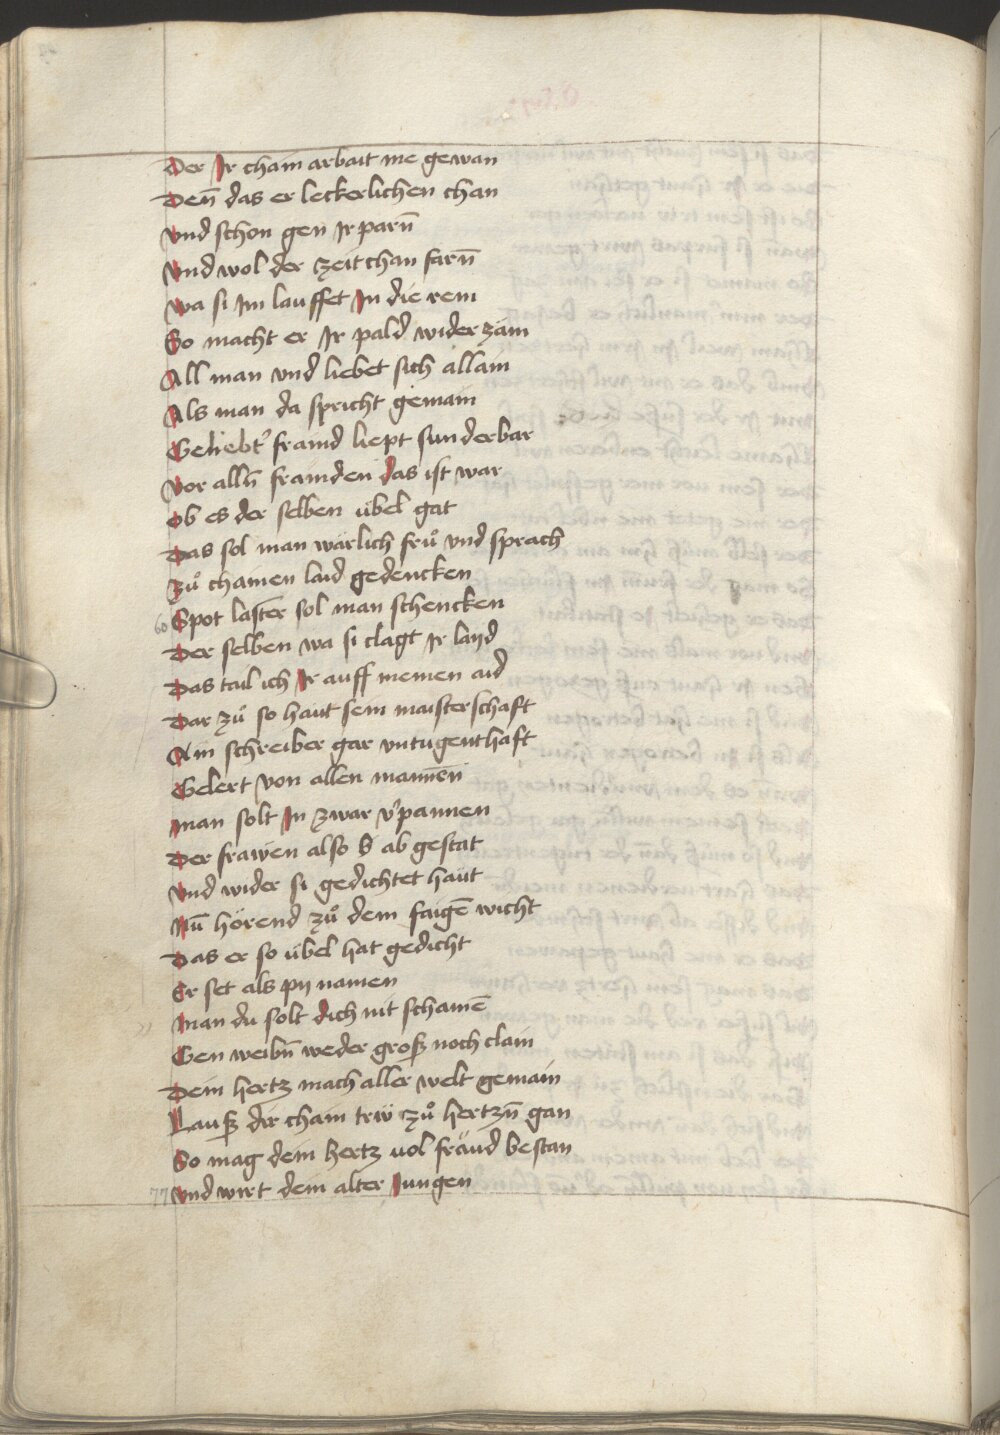 Der Ir cham arbait nie gewan
Denn̄ das er leckerlichen chan
Vnd schon gen Ir parn̄
Vnd wol der zeit chan farn̄
Wa si Im lauffet In die rein
So macht er Ir pald wider zäm
All man vnd liebet sich allain
Als man da spricht gemain
Geliebt' fraind liept sunderbar
Vor alln̄ frainden das ist war
Ob es der selben übel gat
Das sol man wärlich frů vnd sprach
Zů chainen laid gedencken
60 Spot laster sol man schencken
Der selben wa si clagt Ir layd
Das tail ich Ir auff meinen aid
Dar zů so haut sein maisterschaft
Ain schreiber gar vntugenthaft
Gelert von allen mannen̄
Man solt In zwar v'pannen
Der frawen also S ab gestat
Vnd wider si gedichtet haut
Nū hörend zů dem faigē wicht
Das er so übel hat gedicht
Er set als pij namen
Man du solt dich nit schamē
Gen weibn̄ weder groß noch clain
Dein hertz mach aller welt gemain
Lauß dir cham triw zů hertzn̄ gan
So mag dein hertz uol fräud bestan
77 Vnd wirt dein alter Jungen